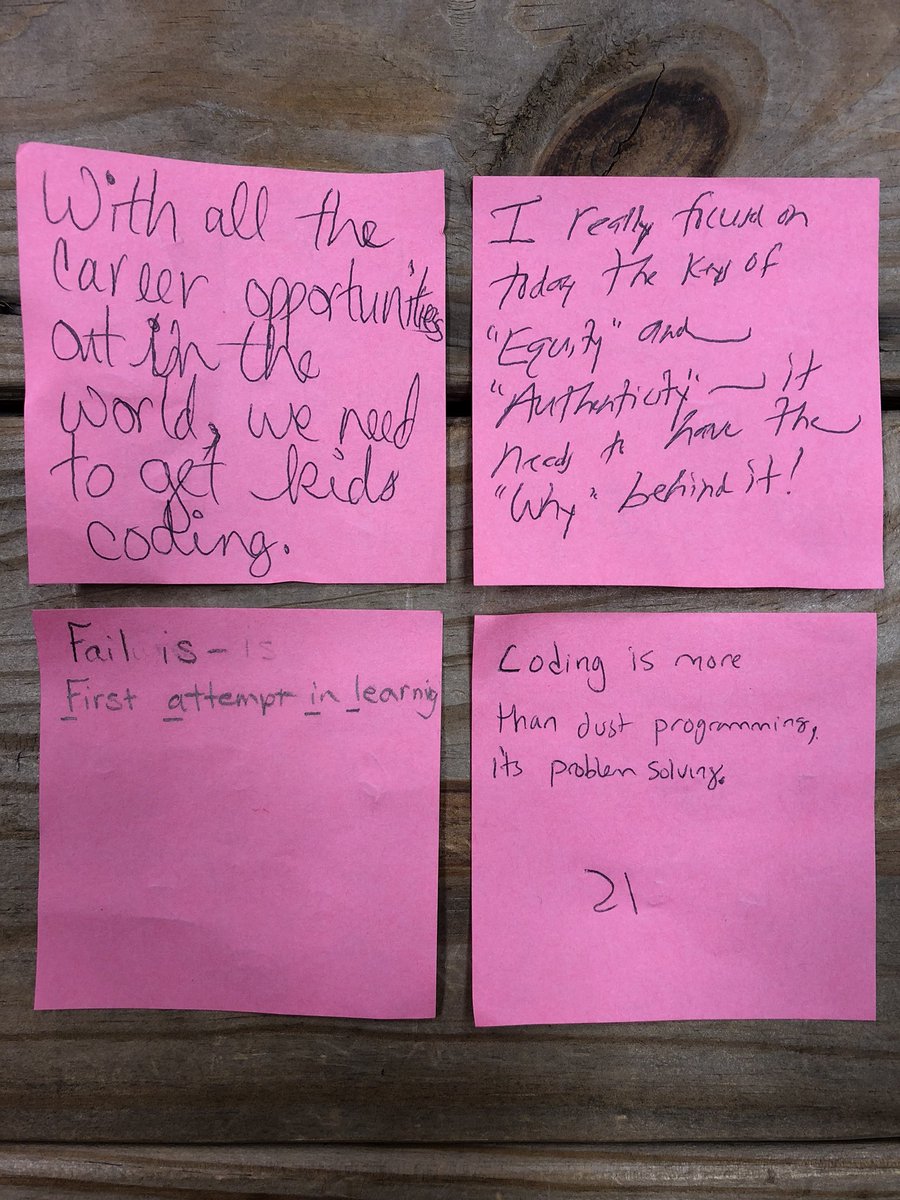 With all the
career opportunities
out in the
world, we need
to get kids
coding.
I really focused on
today the keys of
"Equity" and
"Authenticity" — it
needs to have the
"Why" behind it!
Fail is - is
First attempt in learnig
Coding is more
than dust programming,
its problem solving.
21